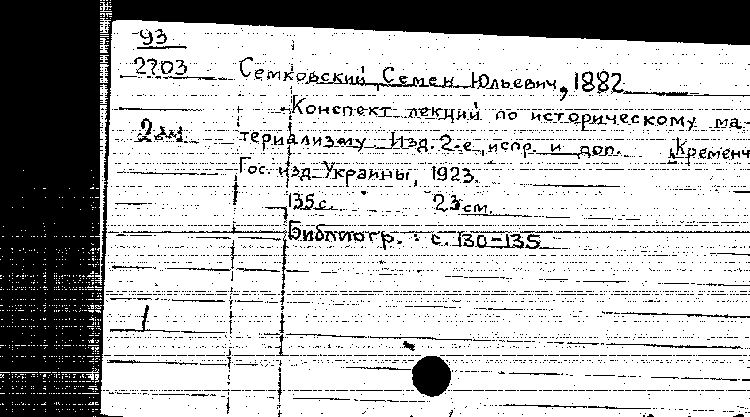 93
2703 Семковский, Семен Юльевич, 1882
Конспект лекций по историческому ма-
2 экз. териализму Изд. 2-е, испр. и доп. Кременч
Гос. изд. Украины, 1923.
135 с. 23 см.
Библиогр. : с. 130-135
1